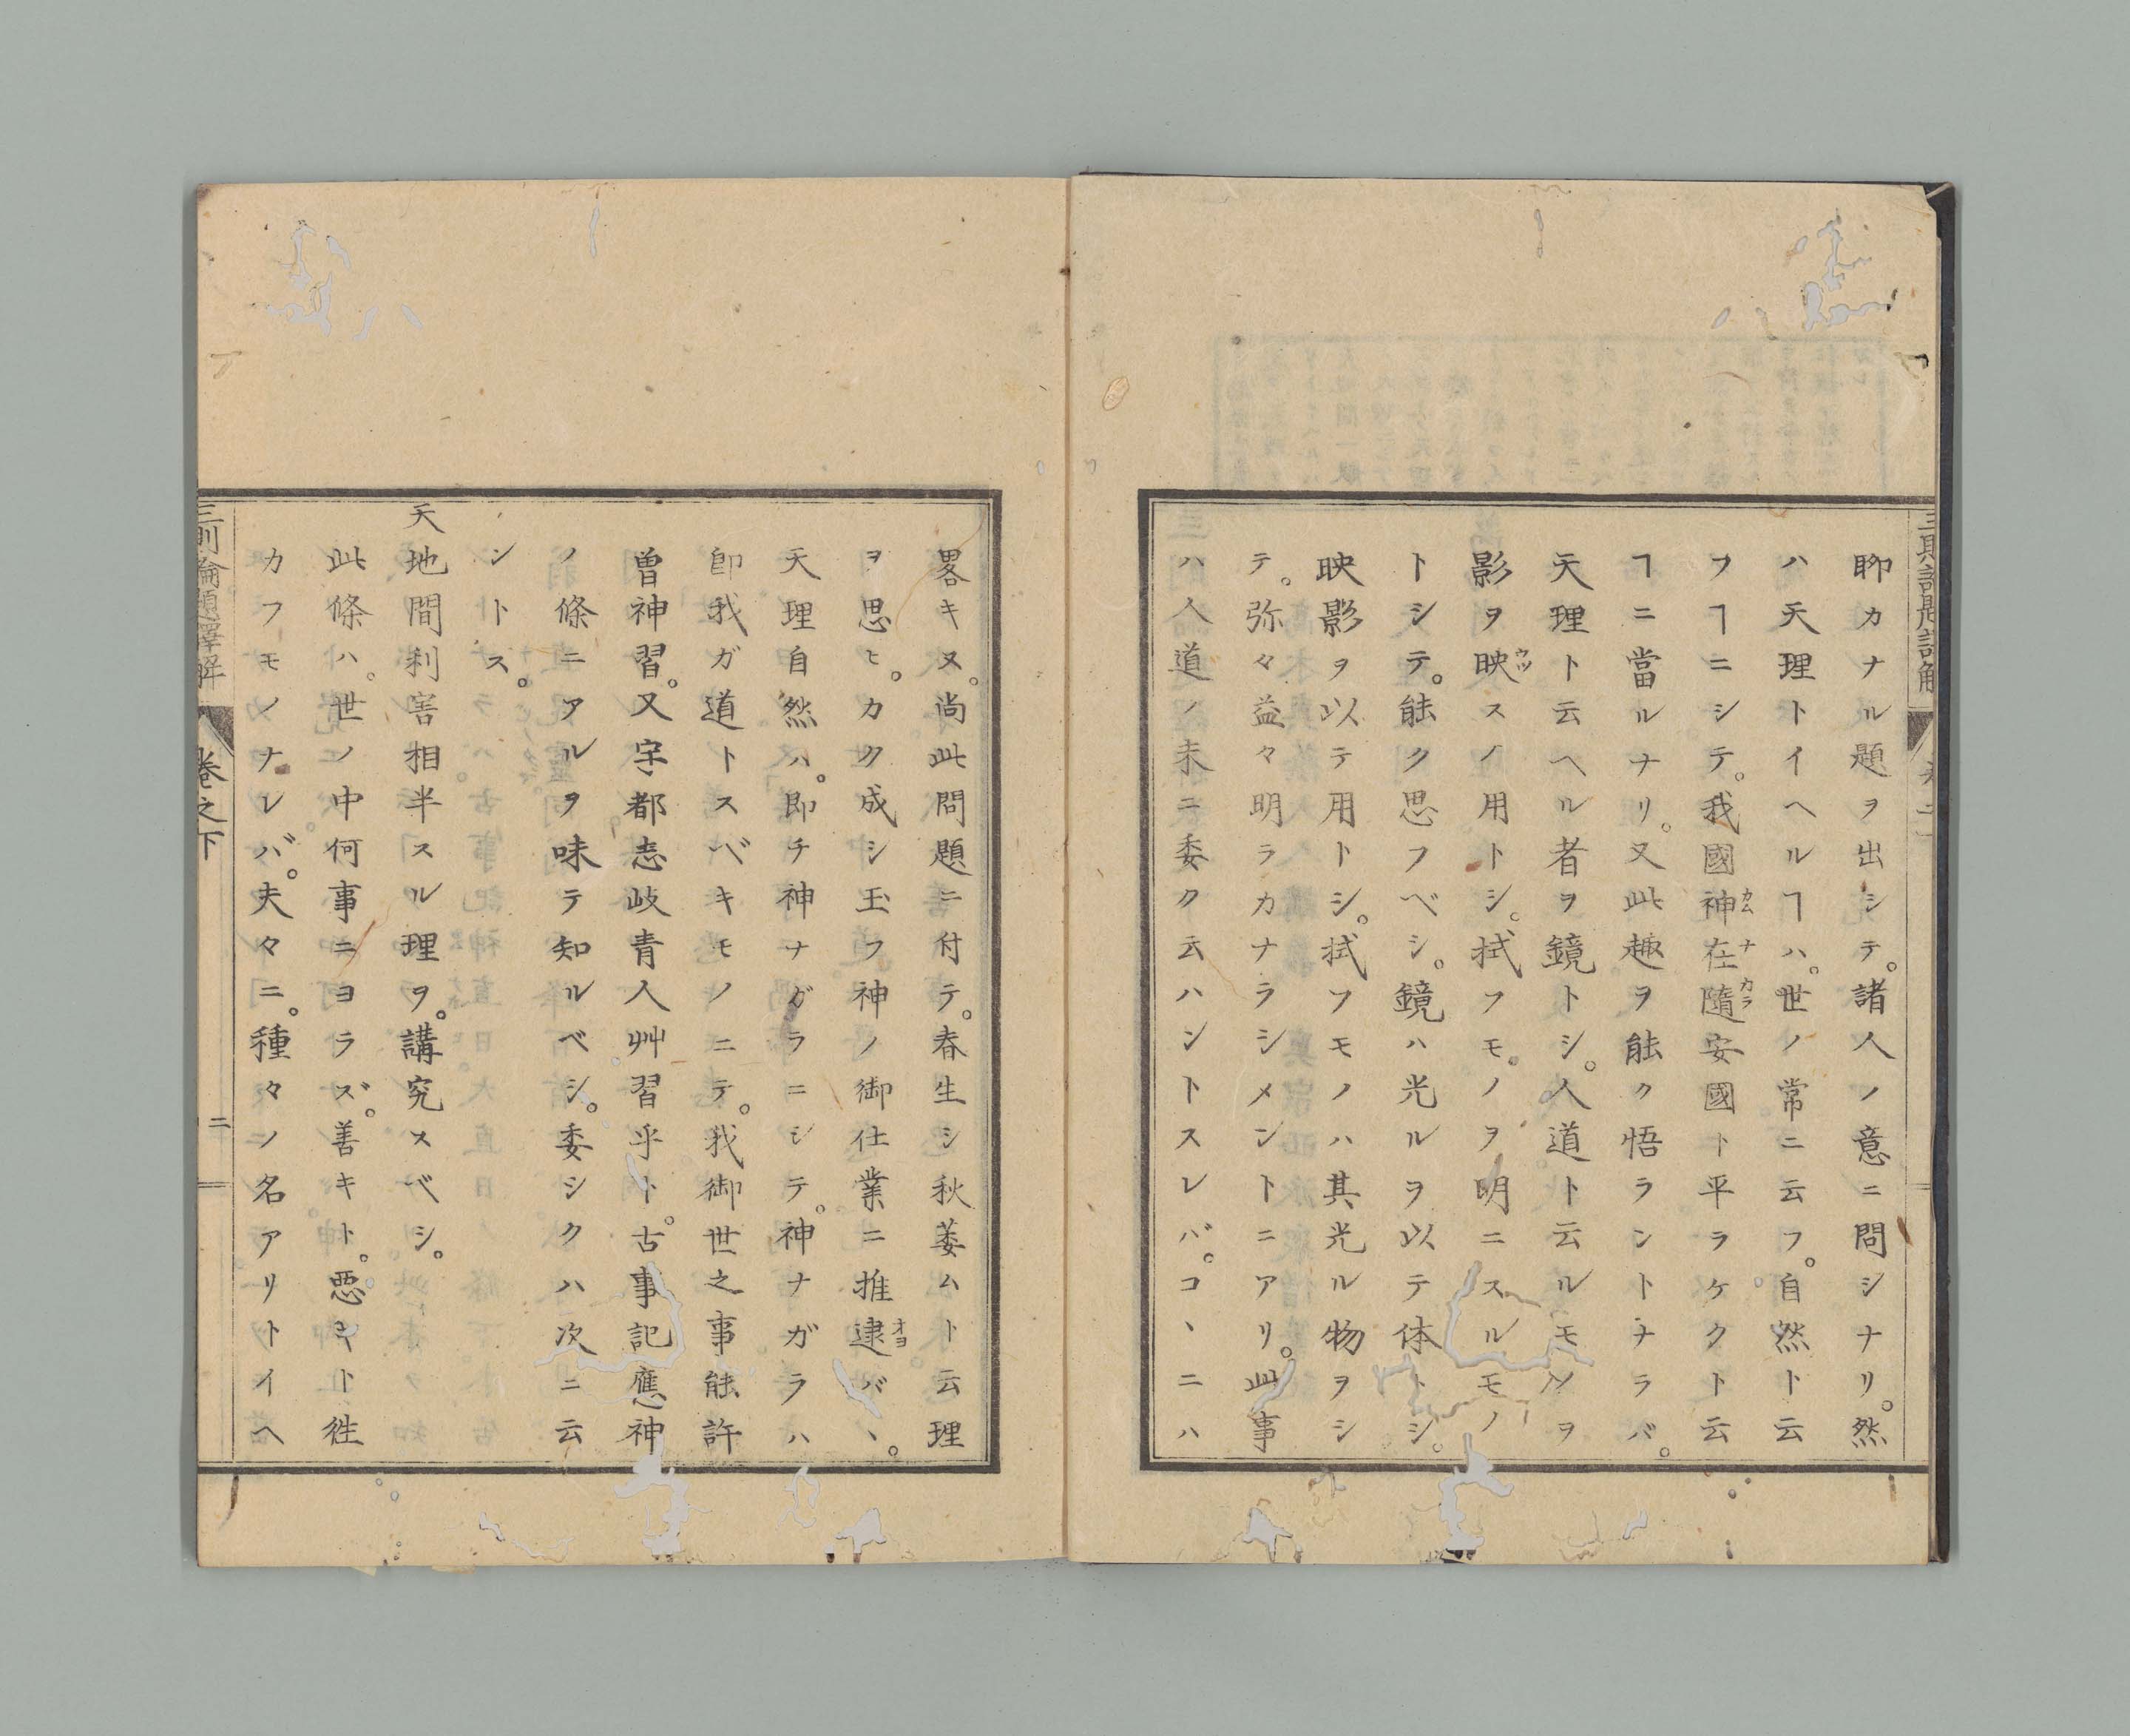 聊カナル題ヲ出シテ。諸人ノ意ニ問シナリ。然
ハ天理トイヘルヿハ。世ノ常ニ云フ。自然ト云
フヿニシテ。我國神在隨安國ト平ラケクト云
カムナカラ
ヿニ當ルナリ。又此趣ヲ能ク悟ラントナラバ。
天理ト云ヘル者ヲ鏡トシ。人道ト云ルモノヲ
影ヲ映スノ用トシ。拭フモ。ノヲ明ニスルモノ
ウツ
トシテ。能ク思フベシ。鏡ハ光ルヲ以テ体トシ。
映影ヲ以テ用トシ。拭フモノハ其光ル物ヲシ
テ。弥々益々明ラカナラシメントニアリ。此事
ハ人道ノ未ニ委ク云ハントスレバ。コヽニハ
畧キヌ。尚此問題ニ付テ。春生シ秋萎ムト云理
ヲ思ヒ。カク成シ玉フ神ノ御仕業ニ推逮バヽ。
オヨ
天理自然ハ。即チ神ナガラニシテ。神ナガラハ
卽我ガ道トスベキモノニテ。我御世之事能許
曽神習。又宇都志岐青人艸習乎ト。古事記應神
ノ條ニアルヲ味テ知ルベシ。委シクハ次ニ云
ントス。
天地間利害相半スル理ヲ。講究スベシ。
此條ハ。世ノ中何事ニヨラズ。善キト。悪シト徃
カフモノナレバ。夫々ニ。種々ノ名アリトイヘ
三則論題釋解
卷之下
二